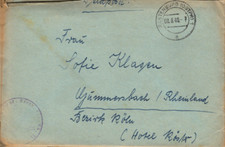 Feldpost
Frau
Sofie Klagen
Gummersbach / Rheinland
Bezirk Köln
(Hotel Köster)